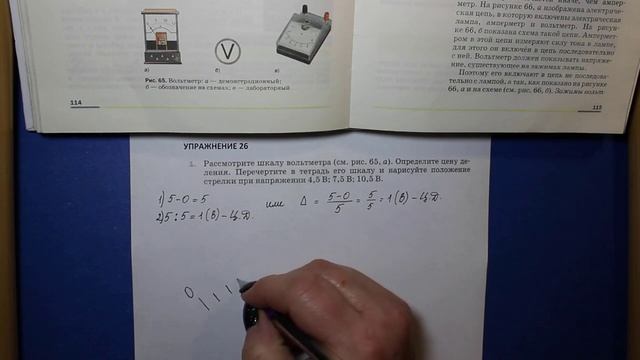 а) б) в)
Рис. 65. Вольтметр: а — демонстрационный;
б — обозначение на схемах; в — лабораторный
114
V
метр. На рисунке 66, а изображена электриче-
ская цепь, в которую включены электрическая
лампа, амперметр и вольтметр. На рисун-
ке 66, б показана схема такой цепи. Ампермет-
ром в этой цепи измеряют силу тока в лампе,
для этого он включён в цепь последовательно
с ней. Вольтметр должен показывать напряже-
ние, существующее на зажимах лампы.
Поэтому его включают в цепь не последова-
тельно с лампой, а так, как показано на рисунке
66, а и на схеме (см. рис. 66, б). Зажимы вольт-
115
УПРАЖНЕНИЕ 26
1. Рассмотрите шкалу вольтметра (см. рис. 65, а). Определите цену де-
ления. Перечертите в тетрадь его шкалу и нарисуйте положение
стрелки при напряжении 4,5 В; 7,5 В; 10,5 В.
1) 5-0=5 или Δ = 5-0/5 = 5/5 = 1(В) - Ц.Д.
2) 5 : 5 = 1(В) - Ц.Д.
0